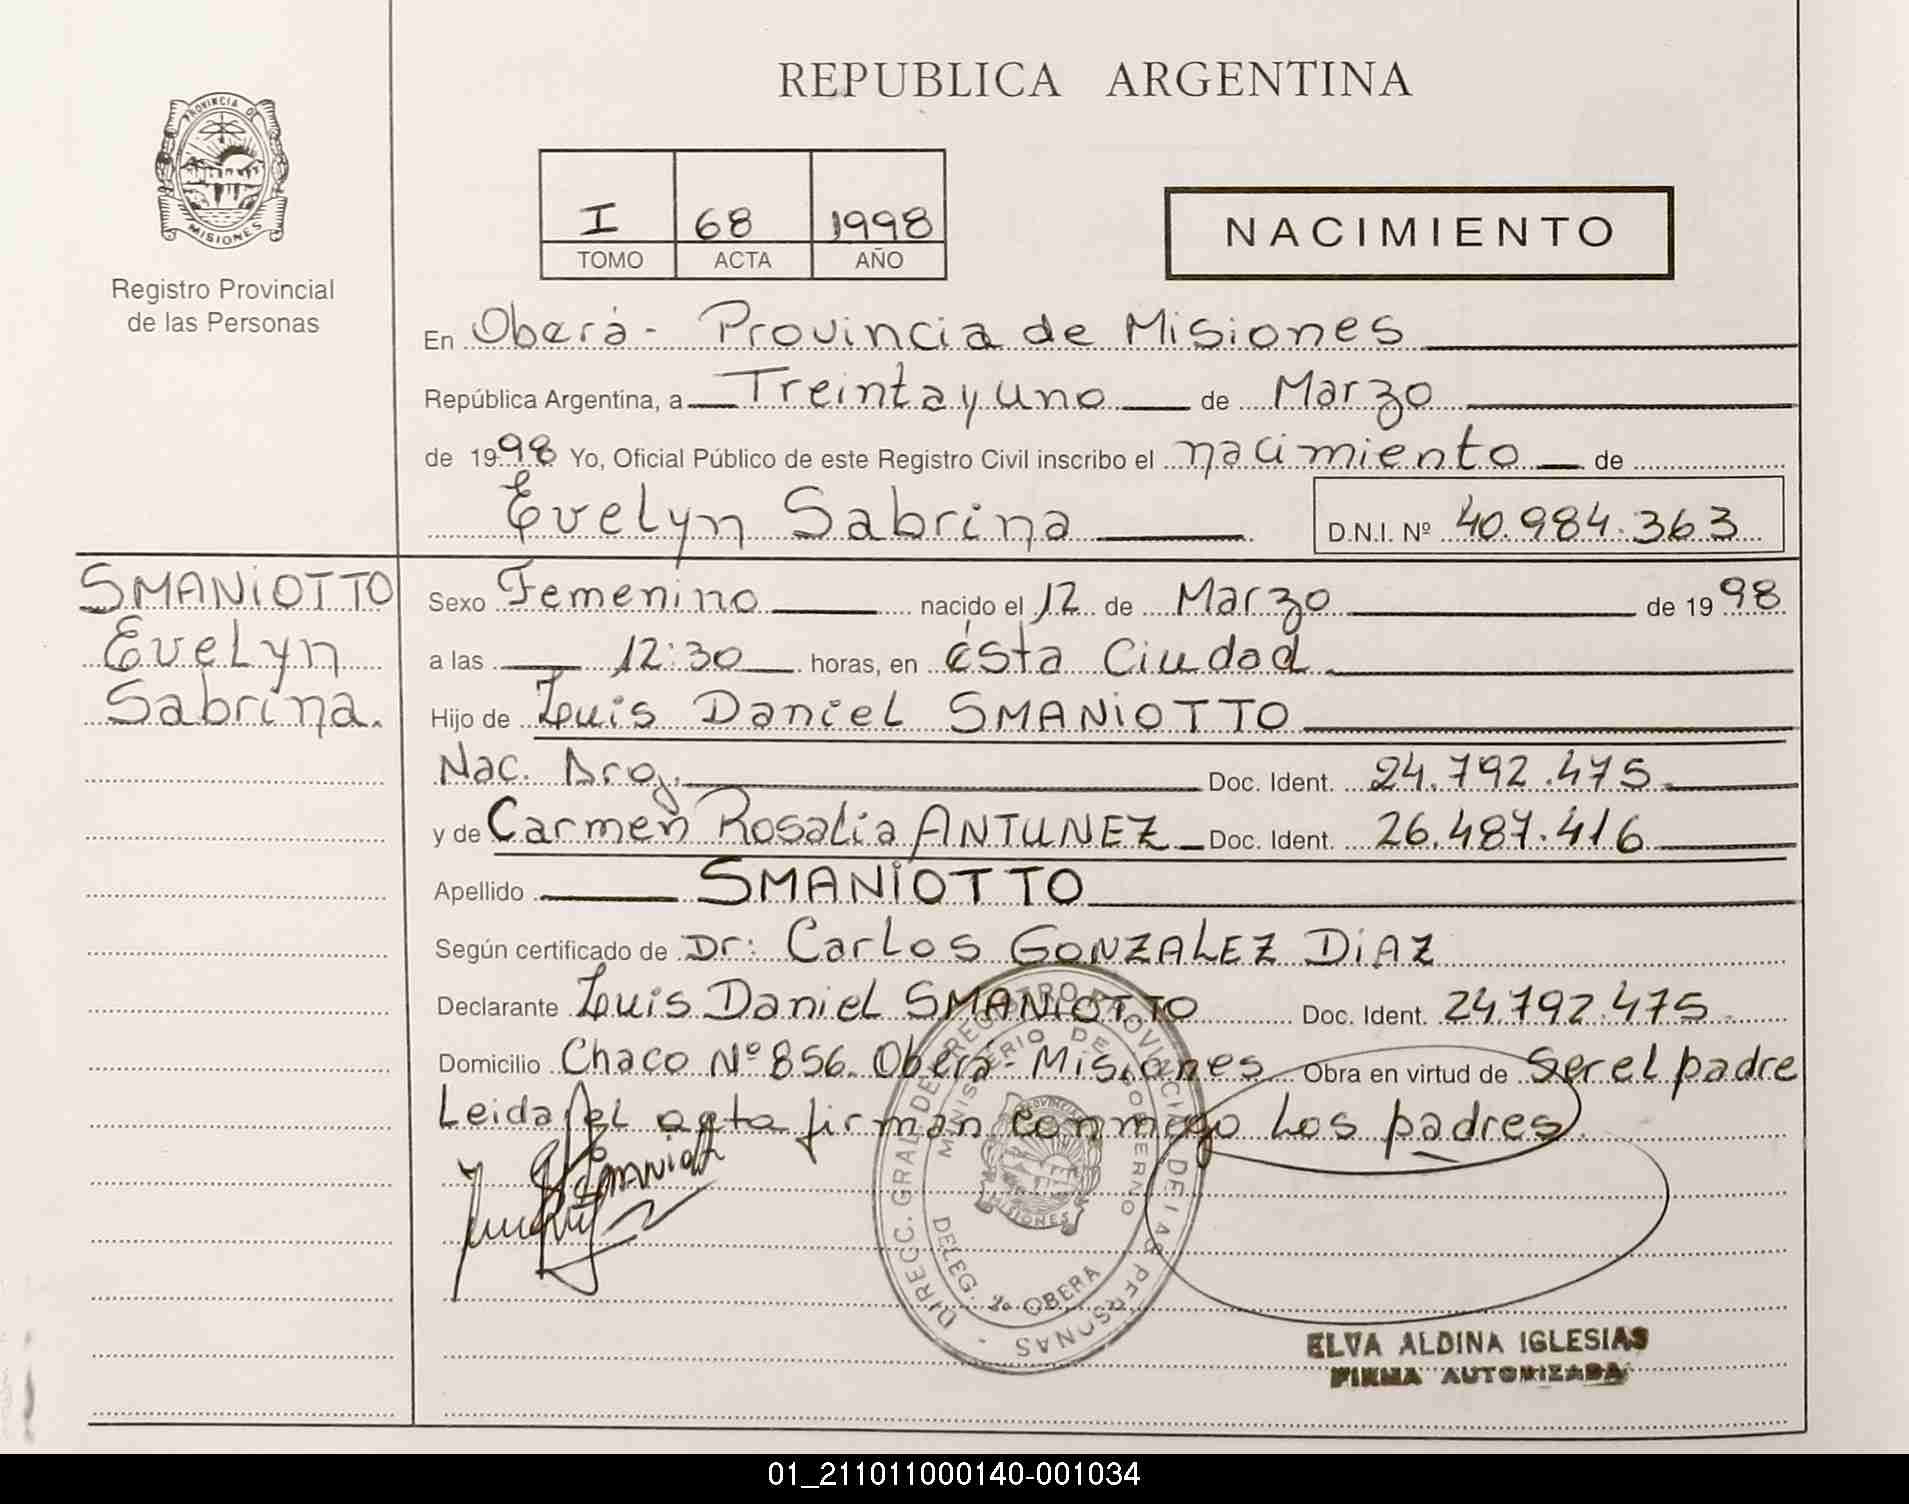 REPUBLICA ARGENTINA
PROVINCIA DE
MISIONES
Registro Provincial
de las Personas
I 68 1998
TOMO ACTA AÑO
NACIMIENTO
En Oberá - Provincia de Misiones
República Argentina, a Treinta y uno de Marzo
de 1998 Yo, Oficial Público de este Registro Civil inscribo el nacimiento de
Evelyn Sabrina D.N.I. Nº 40.984.363
SMANIOTTO
Evelyn
Sabrina.
Sexo Femenino nacido el 12 de Marzo de 1998
a las 12:30 horas, en ésta Ciudad
Hijo de Luis Daniel SMANIOTTO
Nac. Arg. Doc. Ident. 24.792.475
y de Carmen Rosalia ANTUNEZ Doc. Ident. 26.487.416
Apellido SMANIOTTO
Según certificado de Dr: Carlos GONZALEZ DIAZ
Declarante Luis Daniel SMANIOTTO Doc. Ident. 24.792.475
Domicilio Chaco Nº 856. Oberá - Misiones Obra en virtud de Ser el padre
Leida el acta firman conmigo Los padres.
DIRECC. GRAL DEL REGISTRO PROVINCIAL DE LAS PERSONAS -
MINISTERIO DE GOBIERNO
PROVINCIA
MISIONES
DELEG. 2ª OBERA
ELVA ALDINA IGLESIAS
FIRMA AUTORIZADA
01_211011000140-001034